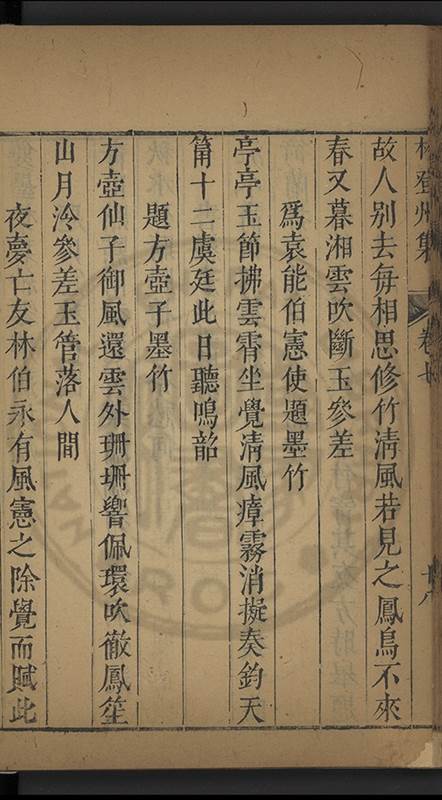 林登州集 卷七 十八
故人別去每相思修竹清風若見之鳳鳥不來
春又暮湘雲吹斷玉參差
爲袁能伯憲使題墨竹
亭亭玉節拂雲霄坐覺清風瘴霧消擬奏鈞天
筩十二虞廷此日聽鳴韶
題方壺子墨竹
方壺仙子御風還雲外珊珊響佩環吹徹鳳笙
山月泠參差玉管落人間
夜夢亡友林伯永有風憲之除覺而賦此